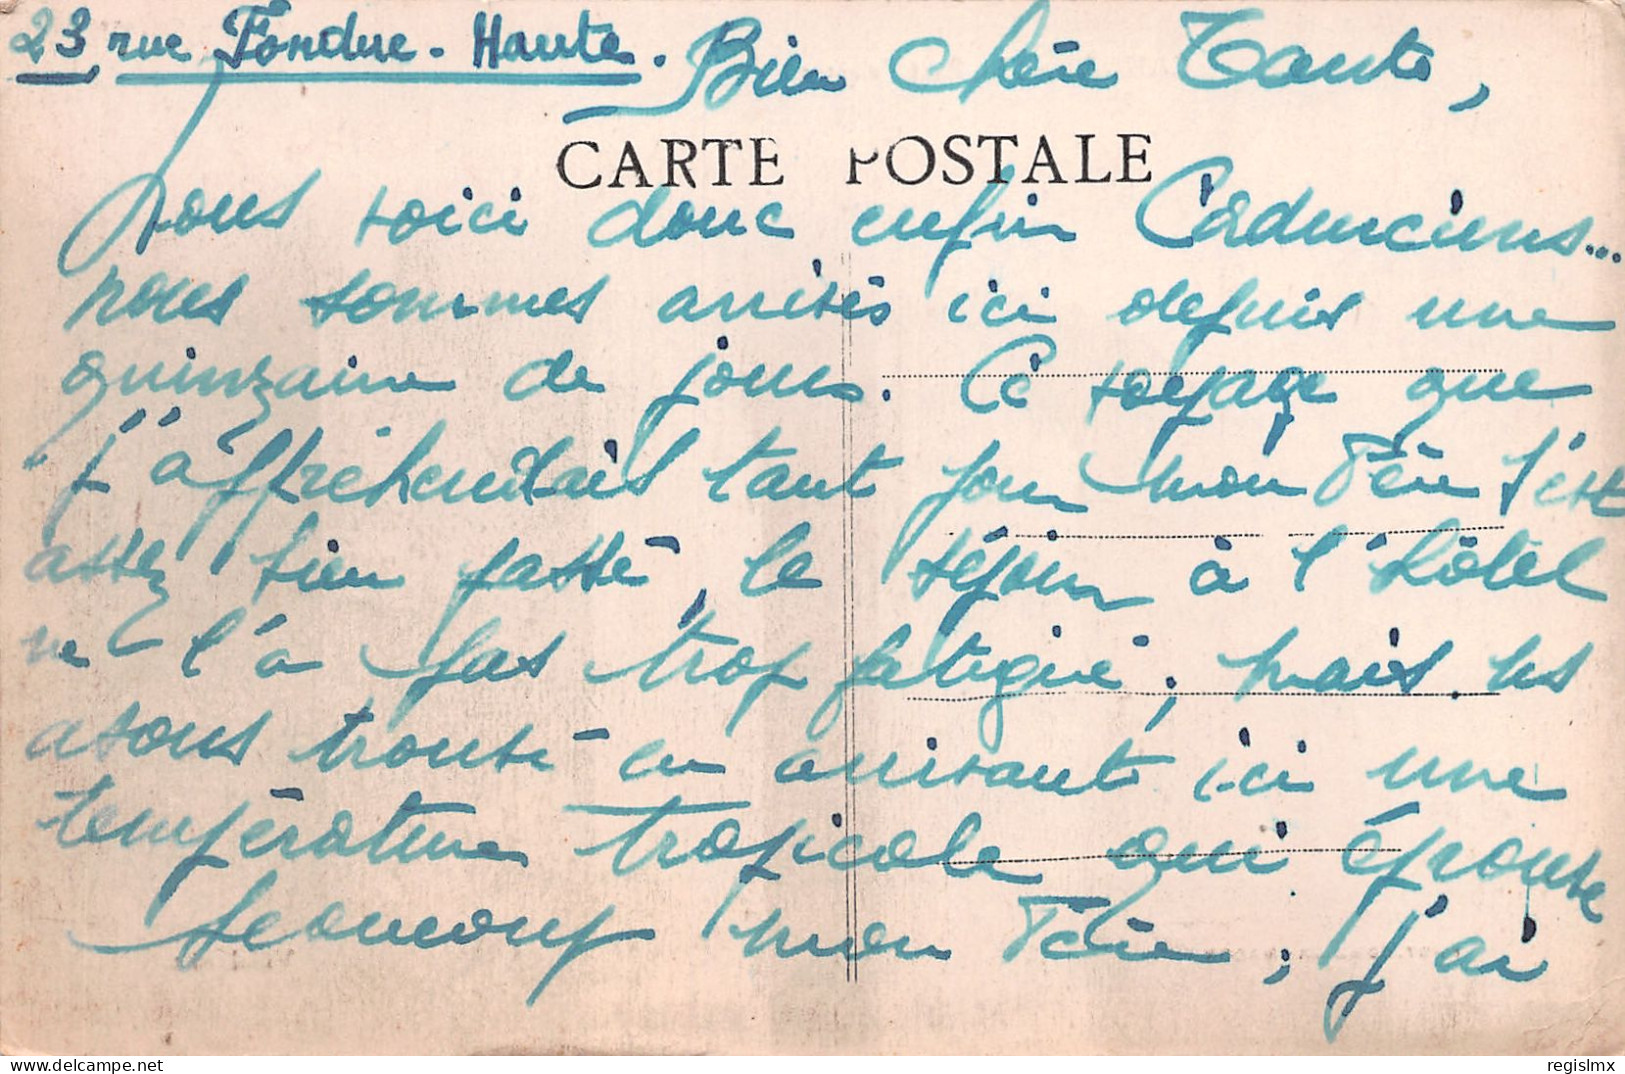 23 rue Fondue-Haute.
Bien chère Tante,
CARTE POSTALE
Nous voici donc enfin Cadurciens...
nous sommes arrivés ici depuis une
quinzaine de jours. Ce voyage que
j'appréhendais tant pour mon Père s'est
assez bien passé, le séjour à l'hôtel
ne l'a pas trop fatigué; mais
avons trouvé en arrivant ici une
température tropicale qui éprouve
beaucoup mon Père; j'ai
regislmx